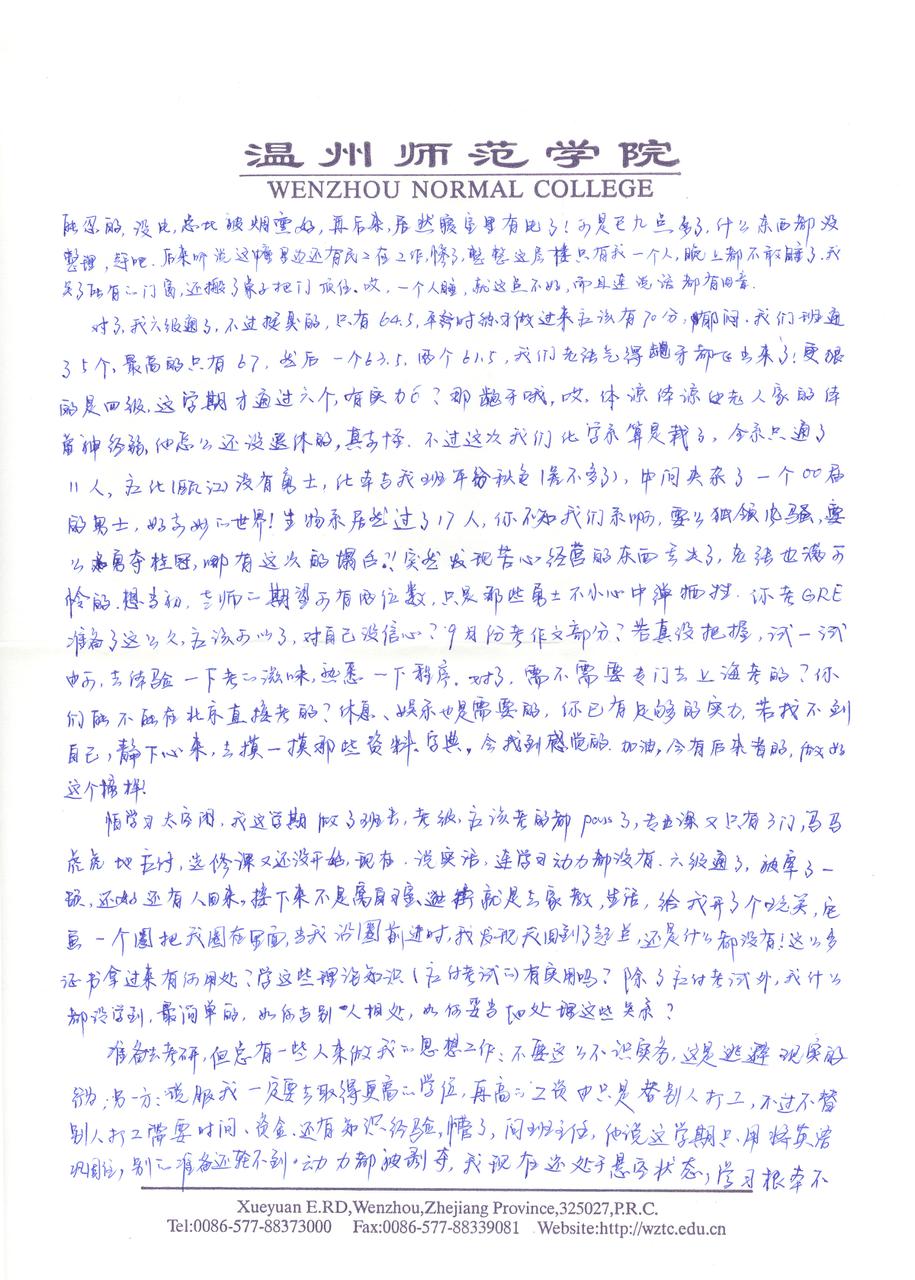 温州师范学院
WENZHOU NORMAL COLLEGE
能忍的,没电,总比被烟熏好,再后来,居然寝室里有电了!可是已九点多了,什么东西都没
整理,后来听说这幢里边还有民工在工作,惨了,整整这层楼只有我一个人,晚上都不敢睡了.我
关了所有门窗,还搬了桌子把门顶住.哎,一个人睡,就这点不好,而且连说话都有回音.
对了,我六级通了,不过挺臭的,只有64.5,平常时练习做过来应该有70分,郁闷.我们班通
了5个,最高的只有67,然后一个63.5,两个61.5,我们老张气得龅牙都飞出来了!更狠
的是四级,这学期才通过六个,有实力吧?那龅牙哦,哎,体谅体谅他老人家的体
首神经弱,他怎么还没退休的,真奇怪.不过这次我们化学系算是栽了,全系只通了
11人,应化(瓯江)没有勇士,化本与我班平分秋色(差不多了),中间夹杂了一个00届
的勇士,好奇妙的世界!生物系居然过了17人,你不知我们系啊,要么独领风骚,要
么勇夺桂冠,哪有这次的塌台!!突然发现苦心经营的东西丢失了,老张也满可
怜的.想当初,老师的期望可有两位数,只是那些勇士不小心中弹牺牲.你考GRE
准备了这么久,应该可以了,对自己没信心?9月份考作文部分?若真没把握,试一试
也可,去体验一下考的滋味,熟悉一下程序.对了,需不需要专门去上海考的?你
们能不能在北京直接考的?休息、娱乐也是需要的,你已有足够的实力,若找不到
自己,静下心来,去摸一摸那些资料.字典,会找到感觉的.加油,会有后来者的,做好
这个榜样!
怕学习太空闲,我这学期做了班长,考级,应该考的都pass了,专业课又只有3门,马马
虎虎地应付,选修课又还没开始,现在.说实话,连学习动力都没有.六级通了,被宰了一
顿,还好还有人回来,接下来不是寓自习室、逛街就是去家教,生活,给我开了个玩笑,它
画一个圈把我圈在里面,当我沿圈前进时,我发现又回到了起点,还是什么都没有!这么多
证书拿过来有何用处?学这些理论知识(应付考试的)有实用吗?除了应付考试外,我什么
都没学到,最简单的,如何与别人相处,如何妥当地处理这些关系?
准备去考研,但总有一些人来做我的思想工作:不要这么不识实务,这是逃避现实的
行为;另一方:说服我一定要去取得更高的学位,再高的工资也只是替别人打工,不过不替
别人打工需要时间、资金、还有知识经验,懵了,问班主任,他说这学期只用将英语
巩固住,别的准备还轮不到.动力都被剥夺,我现在还处于悬空状态,学习根本不
Xueyuan E.RD,Wenzhou,Zhejiang Province,325027,P.R.C.
Tel:0086-577-88373000 Fax:0086-577-88339081 Website:http://wztc.edu.cn